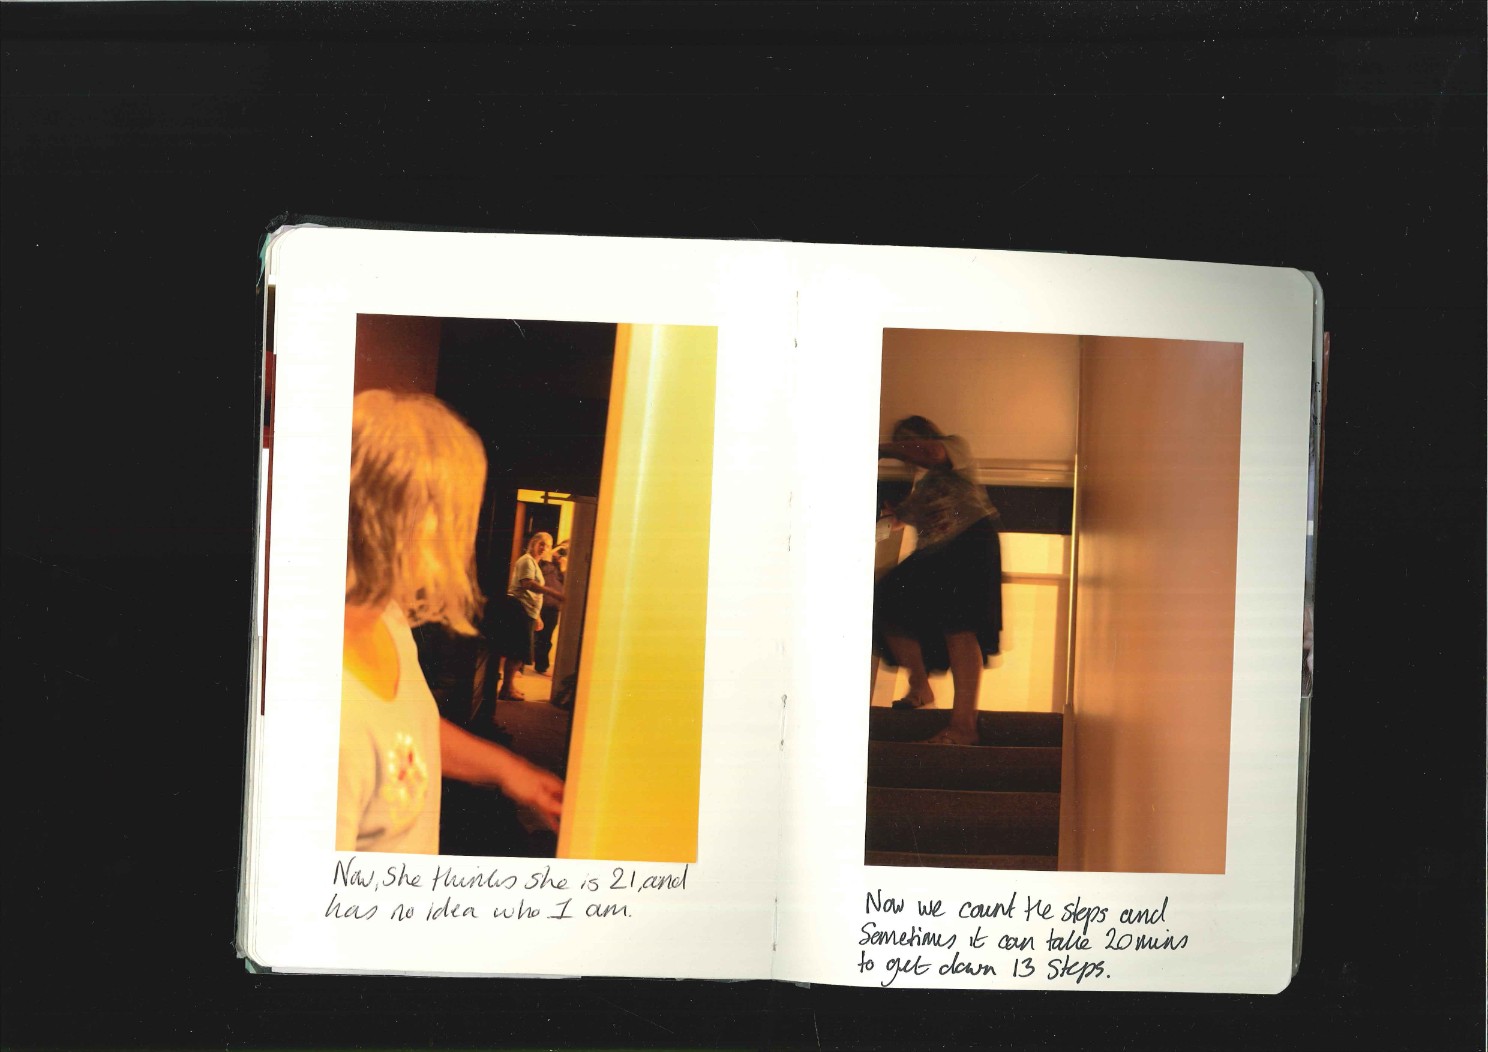 Now, She thinks she is 21, and
has no idea who I am.
Now we count the steps and
Sometimes it can take 20 mins
to get down 13 Steps.